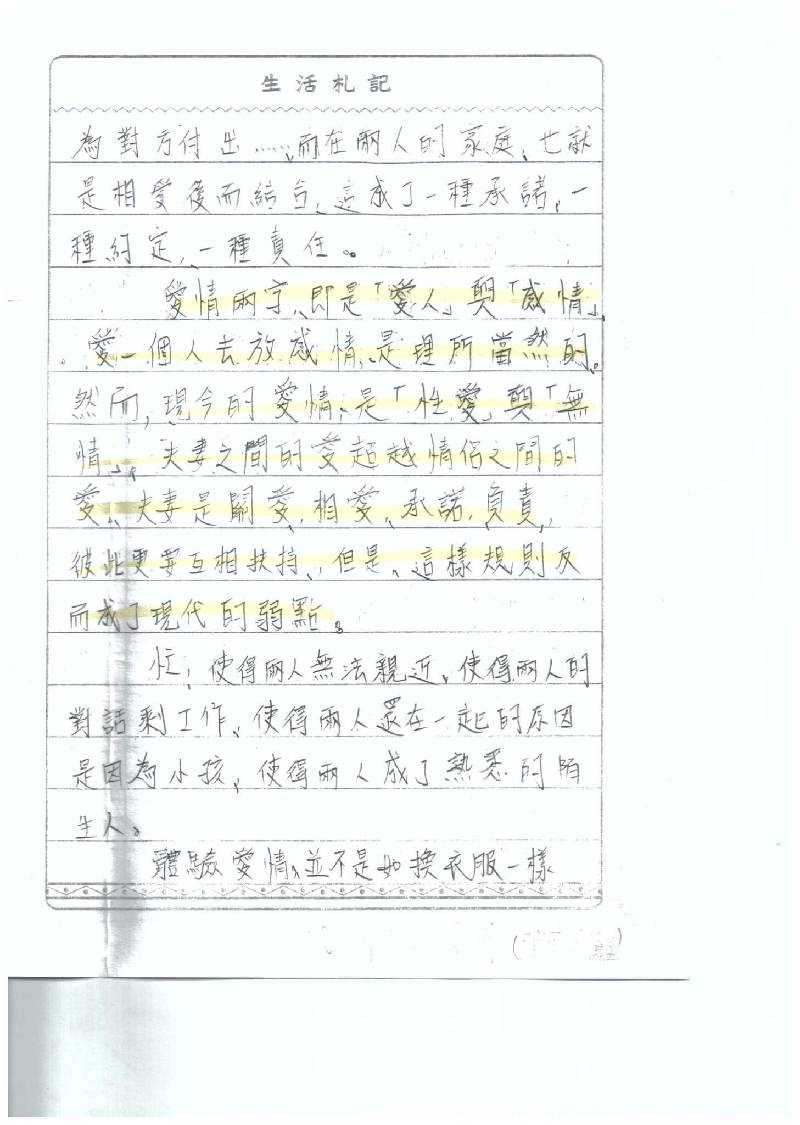 生活札記
為對方付出……，而在兩人的家庭、也就
是相愛後而結合，這成了一種承諾，一
種約定，一種責任。
愛情兩字，即是「愛人」與「感情」
。愛一個人去放感情，是理所當然的。
然而，現今的愛情，是「性愛」與「無
情」。夫妻之間的愛超越情侶之間的
愛，夫妻是關愛，相愛，承諾，負責，
彼此更要互相扶持，但是，這樣規則反
而成了現代的弱點。
忙；使得兩人無法親近、使得兩人的
對話剩工作、使得兩人還在一起的原因
是因為小孩、使得兩人成了熟悉的陌
生人。
體驗愛情，並不是如換衣服一樣